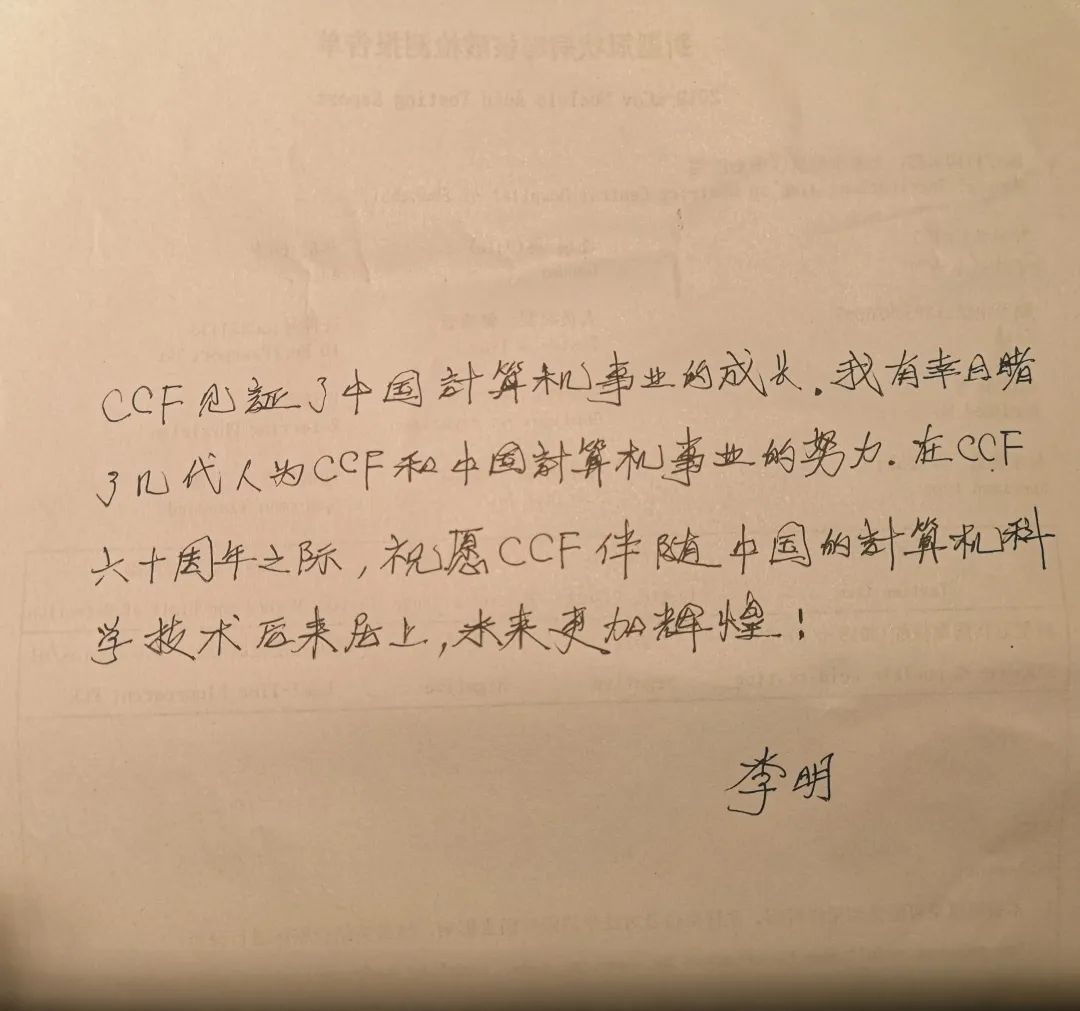 CCF见証了中国計算机事业的成长.我有幸目睹
了几代人为CCF和中国計算机事业的努力.在CCF
六十周年之际,祝愿CCF伴随中国的計算机科
学技术后来居上,未来更加辉煌!
李明